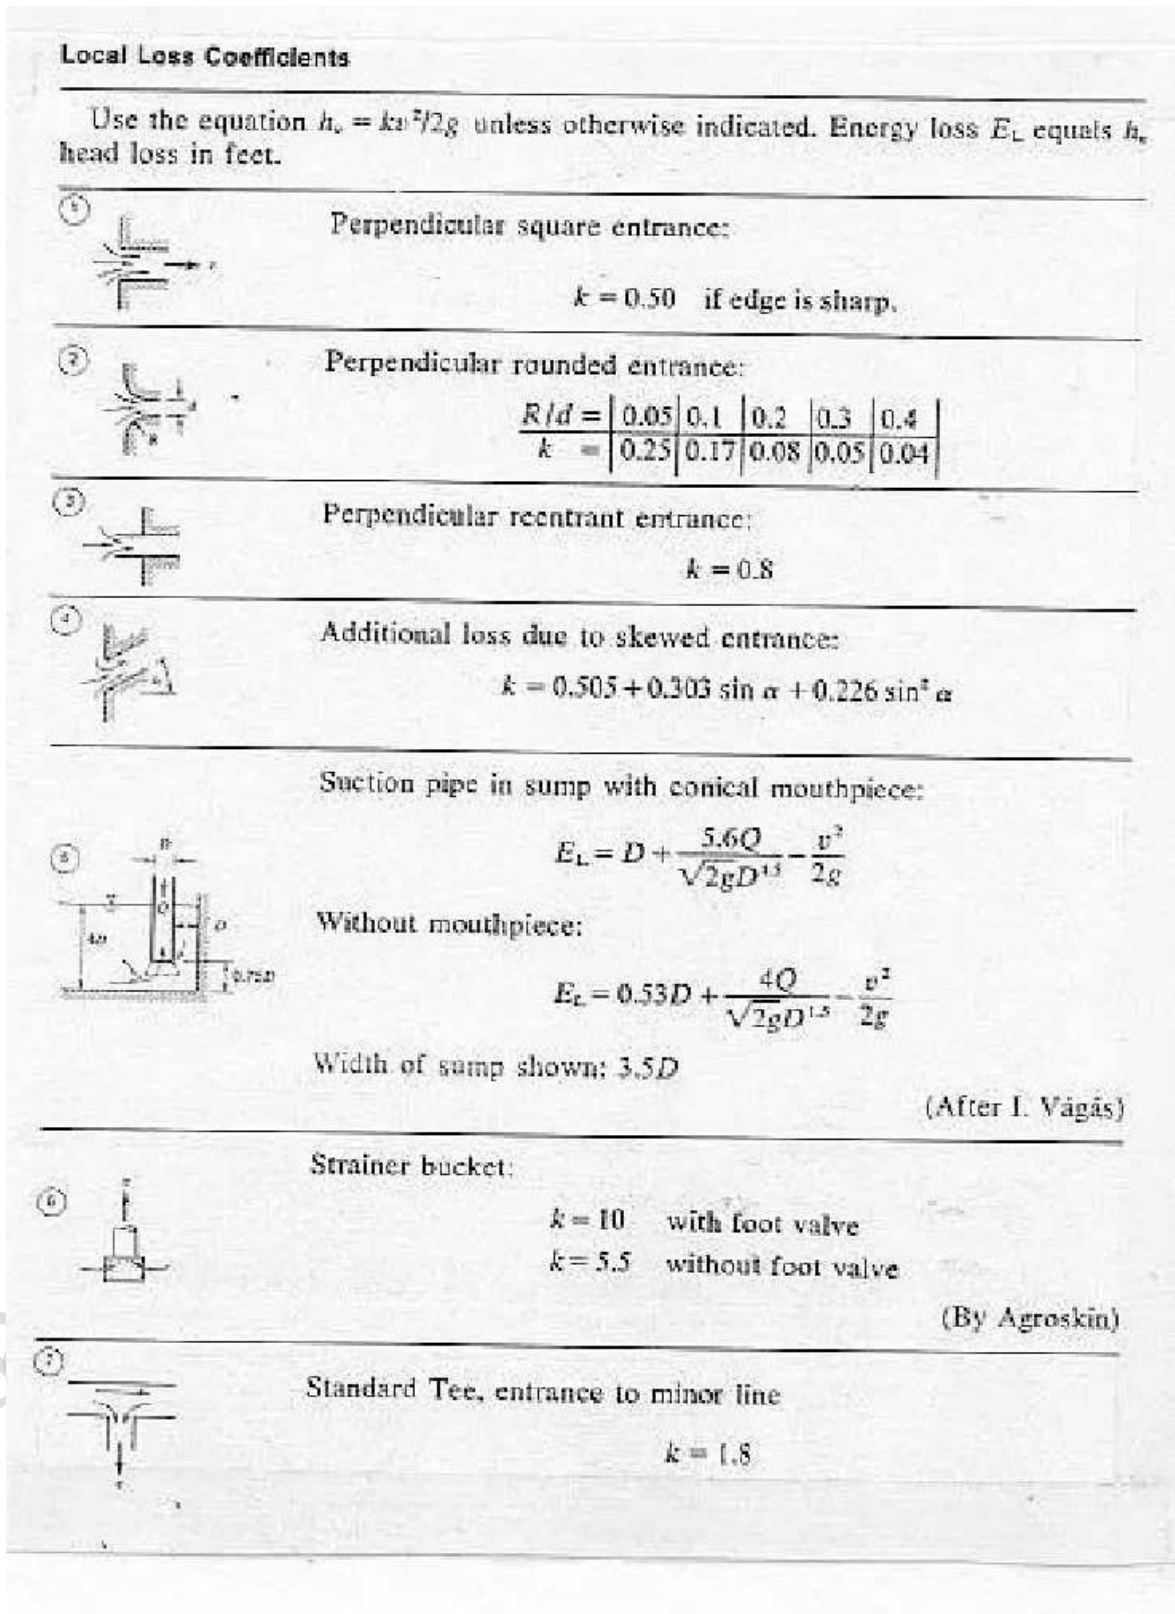 Local Loss Coefficients
Use the equation hᵥ = kv²/2g unless otherwise indicated. Energy loss E_L equals hᵥ
head loss in feet.
1
Perpendicular square entrance:
k = 0.50 if edge is sharp.
2
Perpendicular rounded entrance:
R/d = | 0.05 | 0.1 | 0.2 | 0.3 | 0.4
k = | 0.25 | 0.17 | 0.08 | 0.05 | 0.04
d
R
3
Perpendicular reentrant entrance:
k = 0.8
4
Additional loss due to skewed entrance:
k = 0.505 + 0.303 sin α + 0.226 sin² α
α
Suction pipe in sump with conical mouthpiece:
5
E_L = D + 5.6Q/√2gD^1.5 − v²/2g
D
Q
D
4D
0.75D
Without mouthpiece:
E_L = 0.53D + 4Q/√2gD^1.5 − v²/2g
Width of sump shown: 3.5D
(After I. Vágás)
6
Strainer bucket:
k = 10 with foot valve
k = 5.5 without foot valve
(By Agroskin)
7
Standard Tee, entrance to minor line
k = 1.8